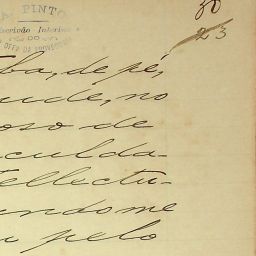 A PINTO
Escrivão Interino
30
23
ba, de pé,
ude, no
oso de
aculda-
tellectu-
ando me
pelo